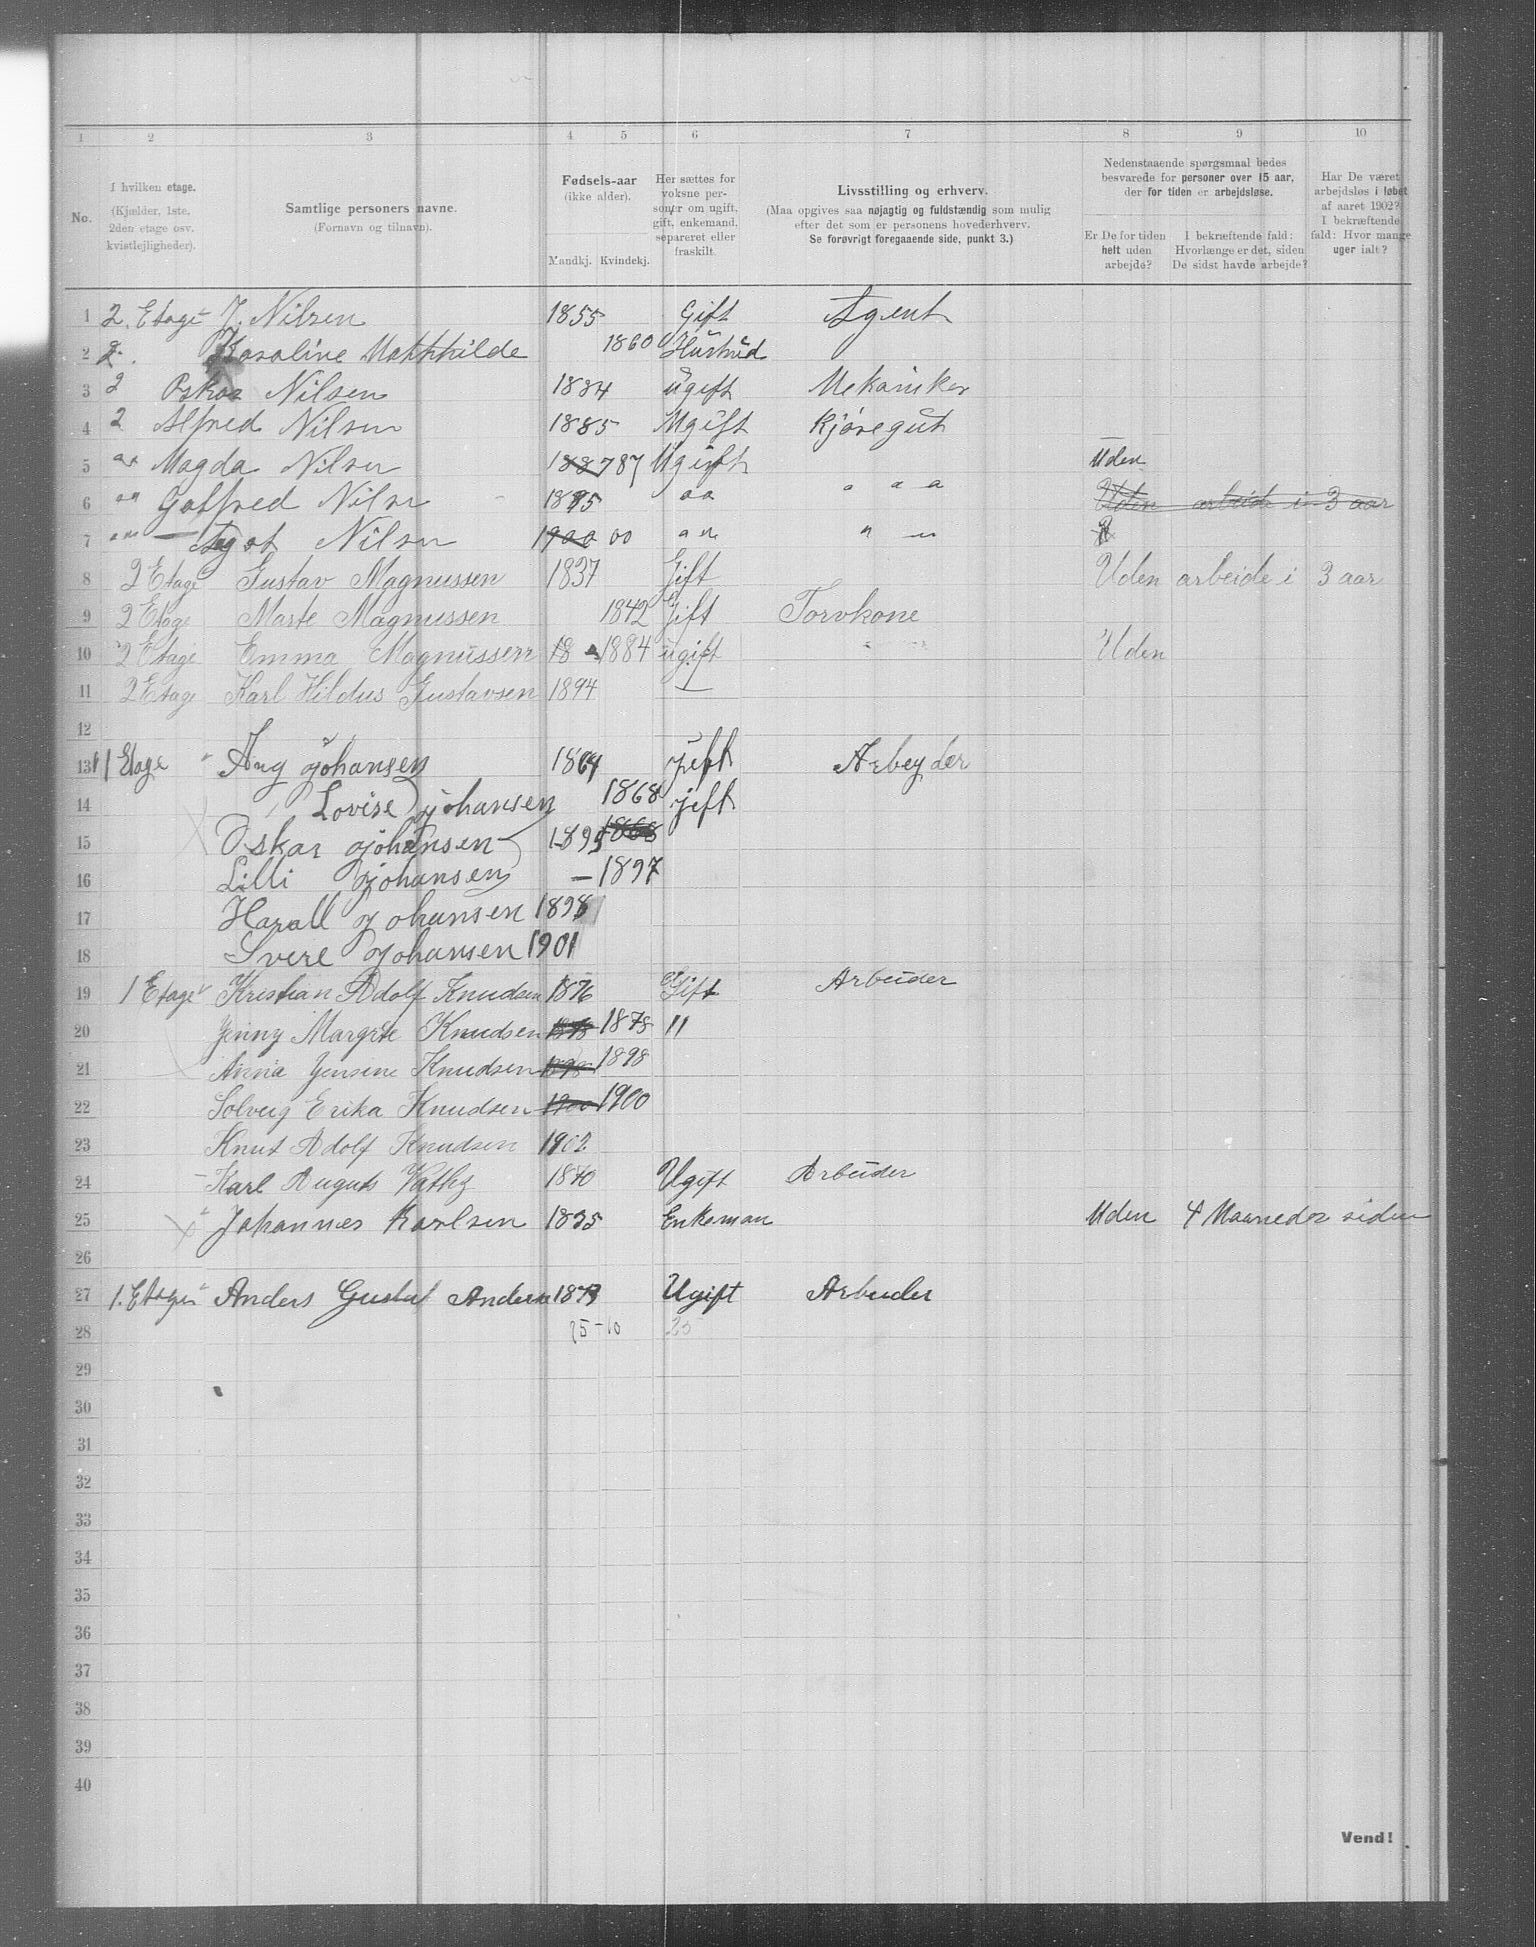 1 2 3 4 5 6 7 8 9 10
No.
I hvilken etage.
(Kjælder, 1ste.
2den etage osv.
kvistlejligheder).
Samtlige personers navne.
(Fornavn og tilnavn).
Fødsels-aar
(ikke alder).
Mandkj. Kvindekj.
Her sættes for
voksne per-
soner om ugift,
gift, enkemand,
separeret eller
fraskilt.
Livsstilling og erhverv.
(Maa opgives saa nøjagtig og fuldstændig som mulig
efter det som er personens hovederhverv.
Se forøvrigt foregaaende side, punkt 3.)
Nedenstaaende spørgsmaal bedes
besvarede for personer over 15 aar,
der for tiden er arbejdsløse.
Er De for tiden
helt uden
arbejde?
I bekræftende fald:
Hvorlænge er det, siden
De sidst havde arbejde?
Har De været
arbejdsløs i løbet
af aaret 1902?
I bekræftende
fald: Hvor mange
uger ialt?
1 2. Etage J. Nilsen 1855 Gift Agent
2 2. Rosaline Mathhilde 1860 Hustrud
3 2 Oskar Nilsen 1884 ugift Mekaniker
4 2 Alfred Nilsen 1885 Ugift Kjøregut
5 " Magda Nilsen 1887 87 Ugift Uden
6 " Gotfred Nilsen 1895 " " " " Uden arbeide i 3 aar
7 " Agot Nilsen 1900 00 " " " "
8 2 Etage Gustav Magnussen 1837 Gift Uden arbeide i 3 aar
9 2 Etage Marte Magnussen 1842 Gift Torvkone
10 2 Etage Emma Magnussen 18 1884 ugift " " Uden
11 2 Etage Karl Hildus Gustavsen 1894 —
12
13 1 Etage Aug Johansen 1864 jeft Arbeyder
14 Lovise Johansen 1868 jeft
15 Oskar Johansen 1895 1868
16 Lilli Johansen — 1897
17 Harall Johansen 1898
18 Svere Johansen 1901
19 1 Etage Kristian Adolf Knudsen 1876 Gift Arbeider
20 Jenny Margrete Knudsen 1878 1878 "
21 Anna Jensine Knudsen 1898 1898
22 Solveig Erika Knudsen 1900 1900
23 Knut Adolf Knudsen 1902
24 Karl Auguts Vathy 1870 Ugift Arbeider
25 " Johannes Karlsen 1835 Enkeman Uden 4 Maaneder siden
26
27 1. Etage Anders Gustaf Andersen 1873 Ugift Arbeider
28 15-10 25
29
30
31
32
33
34
35
36
37
38
39
40
Vend!